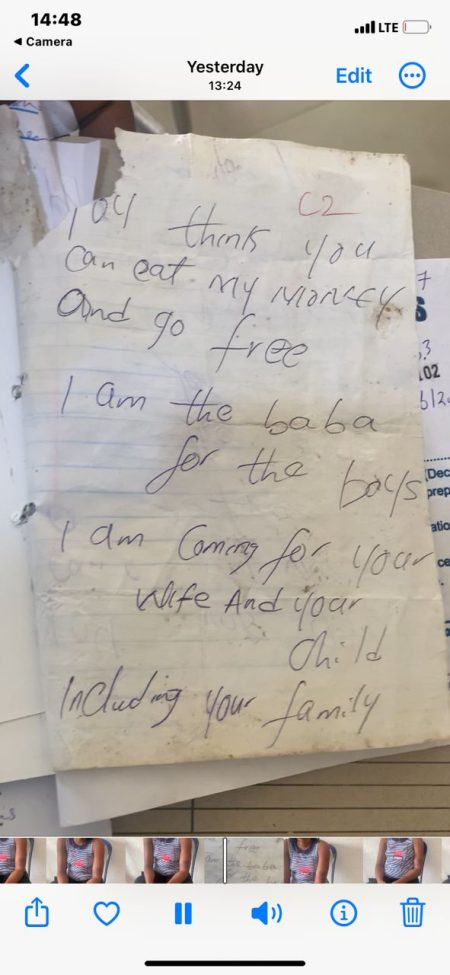 14:48
LTE
Camera
Yesterday
13:24
Edit
C2
think you
can eat my MONEY
And go free
I am the baba
for the boys
I am coming for your
Wife And your
child
Including your family
7
S
.3
102
(Dec
prep
atio
ce
free
baba
the